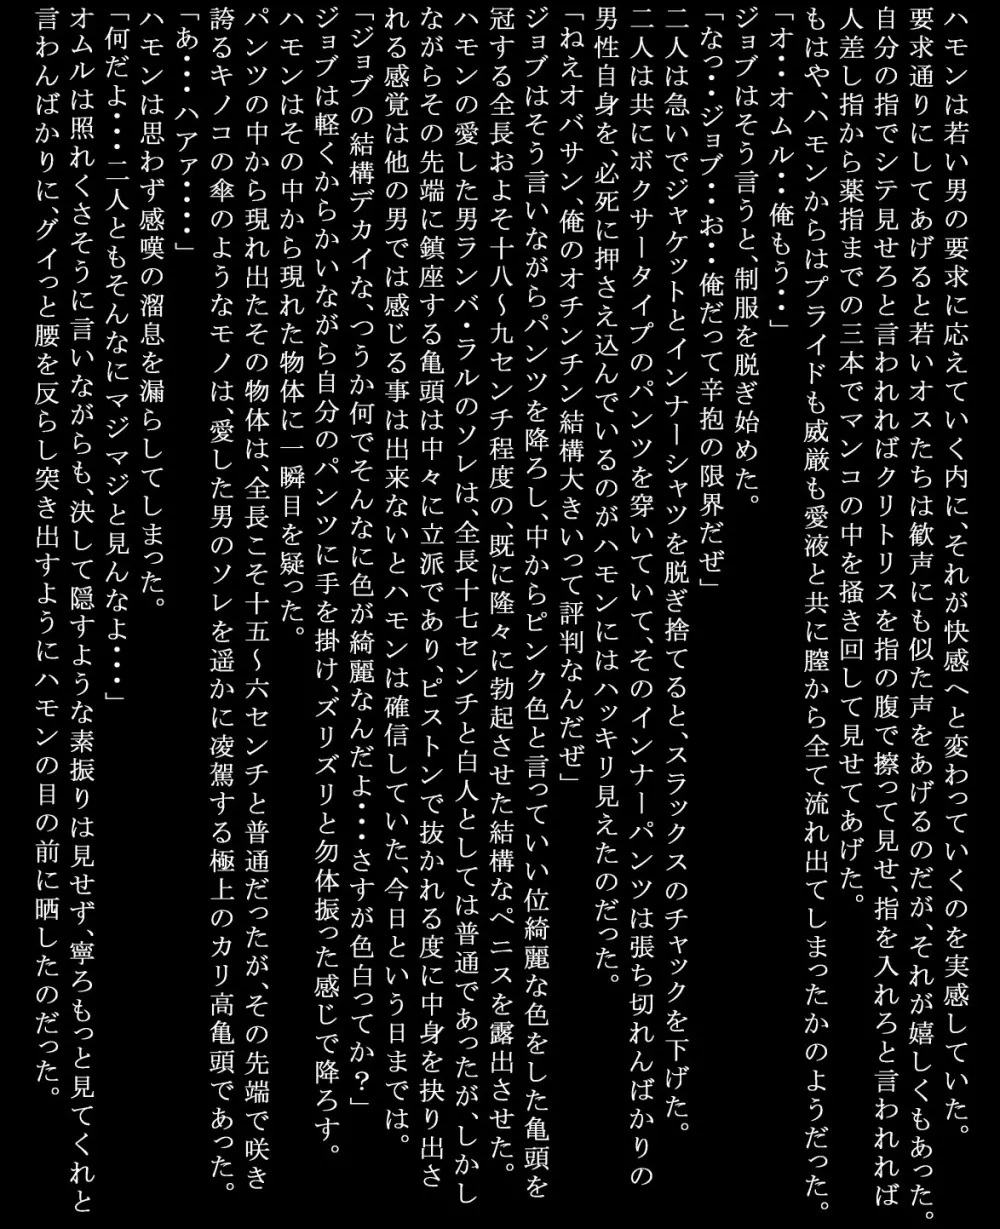 ハモンは若い男の要求に応えていく内に、それが快感へと変わっていくのを実感していた。
要求通りにしてあげると若いオスたちは歓声にも似た声をあげるのだが、それが嬉しくもあった。
自分の指でシテ見せろと言われればクリトリスを指の腹で擦って見せ、指を入れろと言われれば
人差し指から薬指までの三本でマンコの中を掻き回して見せてあげた。
もはや、ハモンからはプライドも威厳も愛液と共に膣から全て流れ出てしまったかのようだった。
「オ・・オムル・・俺もう・・」
ジョブはそう言うと、制服を脱ぎ始めた。
「なっ・・ジョブ・・お・・俺だって辛抱の限界だぜ」
二人は急いでジャケットとインナーシャツを脱ぎ捨てると、スラックスのチャックを下げた。
二人は共にボクサータイプのパンツを穿いていて、そのインナーパンツは張ち切れんばかりの
男性自身を、必死に押さえ込んでいるのがハモンにはハッキリ見えたのだった。
「ねえオバサン、俺のオチンチン結構大きいって評判なんだぜ」
ジョブはそう言いながらパンツを降ろし、中からピンク色と言っていい位綺麗な色をした亀頭を
冠する全長およそ十八～九センチ程度の、既に隆々に勃起させた結構なペニスを露出させた。
ハモンの愛した男ランバ・ラルのソレは、全長十七センチと白人としては普通であったが、しかし
ながらその先端に鎮座する亀頭は中々に立派であり、ピストンで抜かれる度に中身を抉り出さ
れる感覚は他の男では感じる事は出来ないとハモンは確信していた、今日という日までは。
「ジョブの結構デカイな、つうか何でそんなに色が綺麗なんだよ・・・さすが色白ってか？」
ジョブは軽くからかいながら自分のパンツに手を掛け、ズリズリと勿体振った感じで降ろす。
ハモンはその中から現れた物体に一瞬目を疑った。
パンツの中から現れ出たその物体は、全長こそ十五～六センチと普通だったが、その先端で咲き
誇るキノコの傘のようなモノは、愛した男のソレを遥かに凌駕する極上のカリ高亀頭であった。
「あ・・・ハアァ・・・・」
ハモンは思わず感嘆の溜息を漏らしてしまった。
「何だよ・・・二人ともそんなにマジマジと見んなよ・・・」
オムルは照れくさそうに言いながらも、決して隠すような素振りは見せず、寧ろもっと見てくれと
言わんばかりに、グイっと腰を反らし突き出すようにハモンの目の前に晒したのだった。